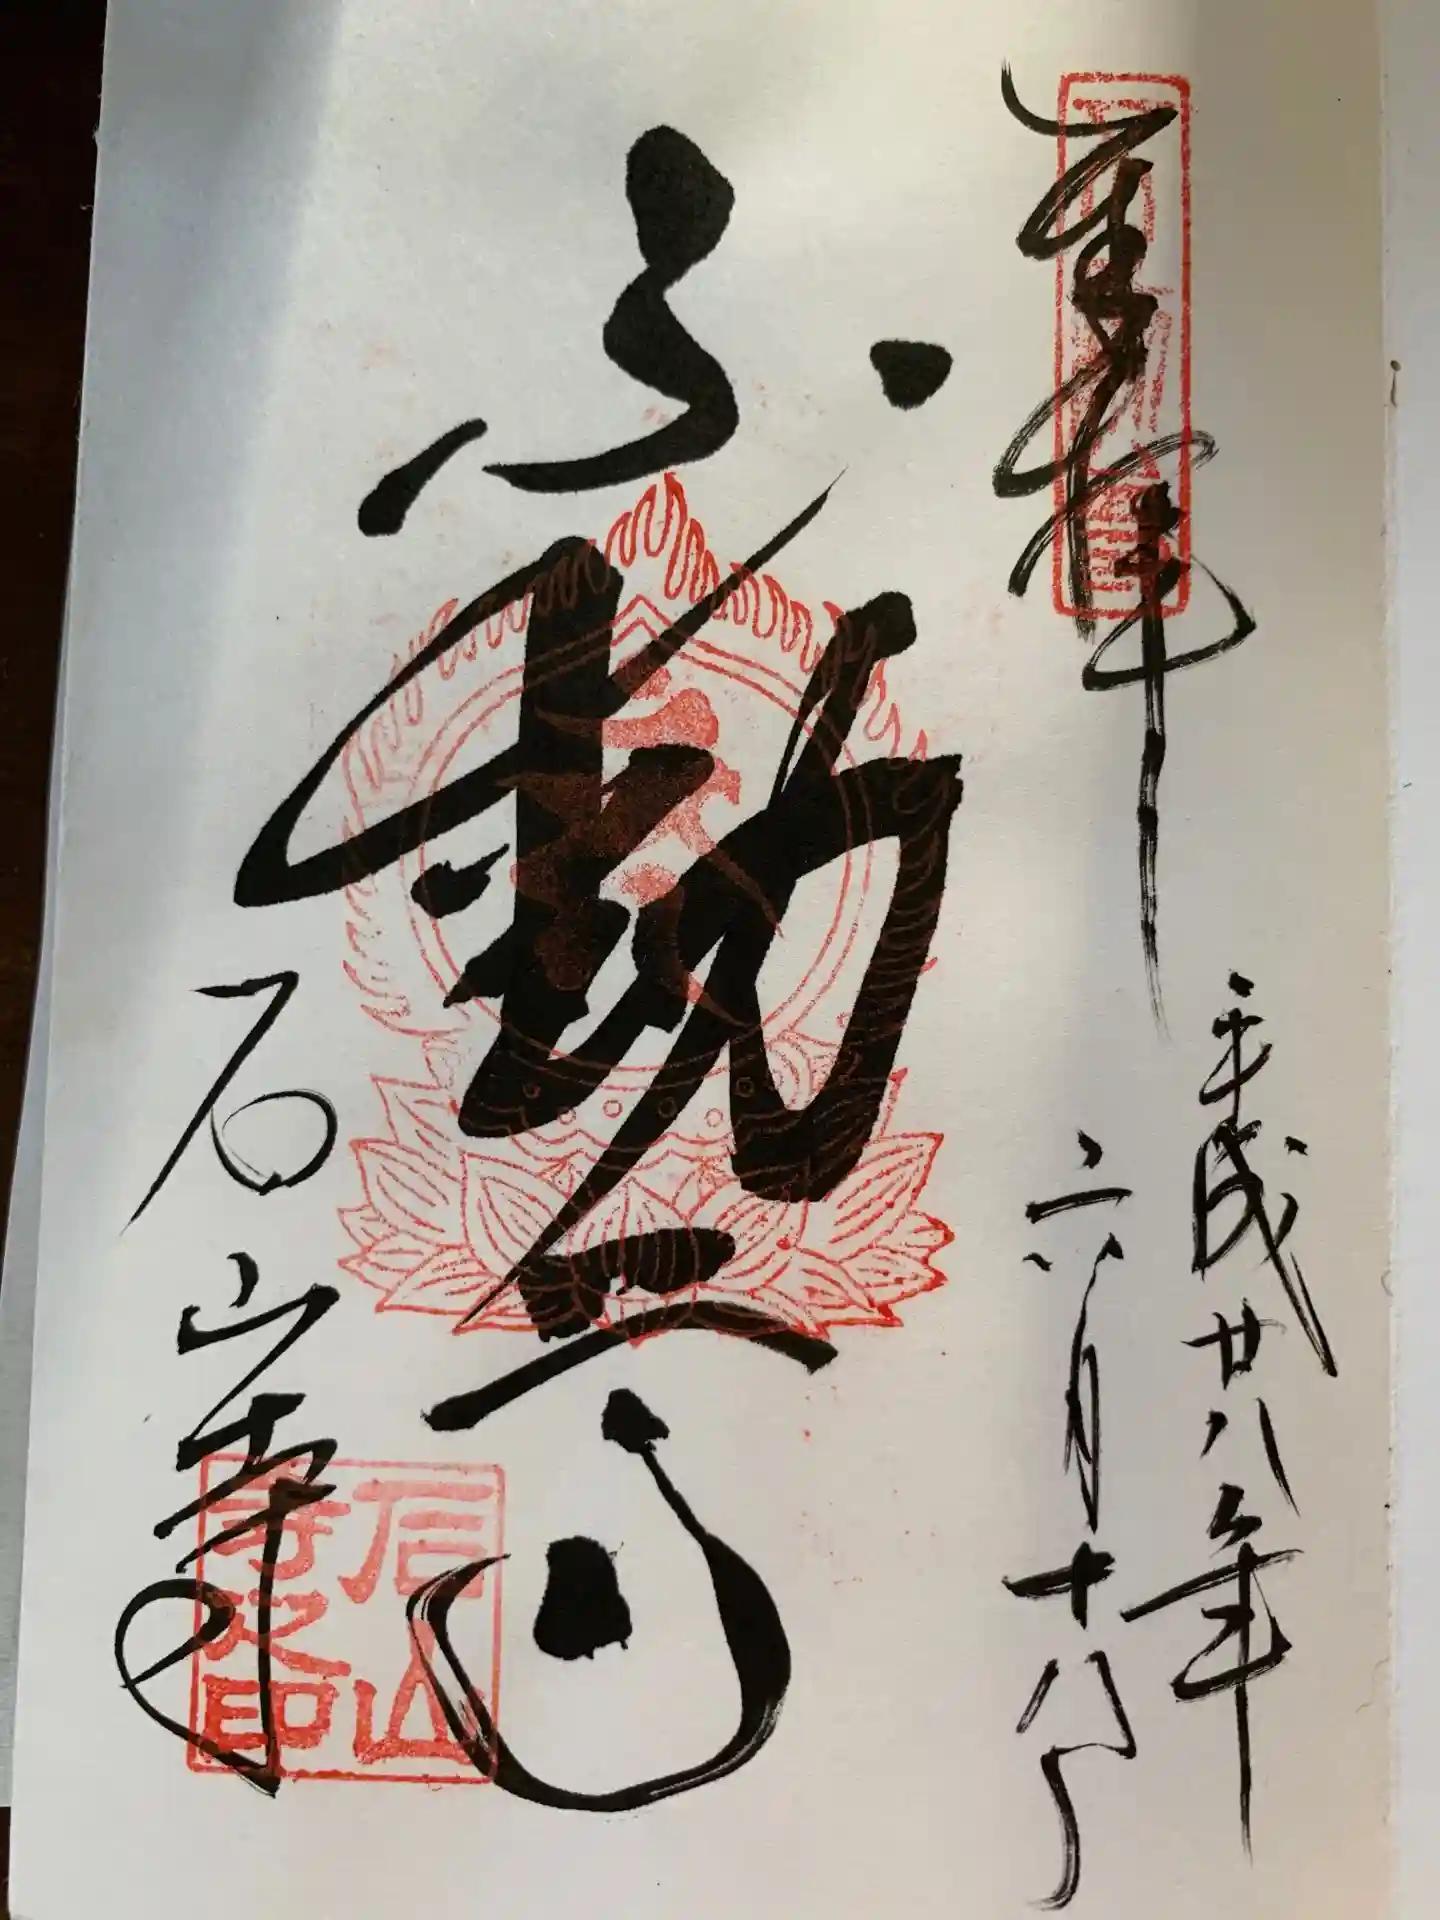 奉拝
平成廿八年
六月十八日
不動尊
石山寺
石山
寺之印